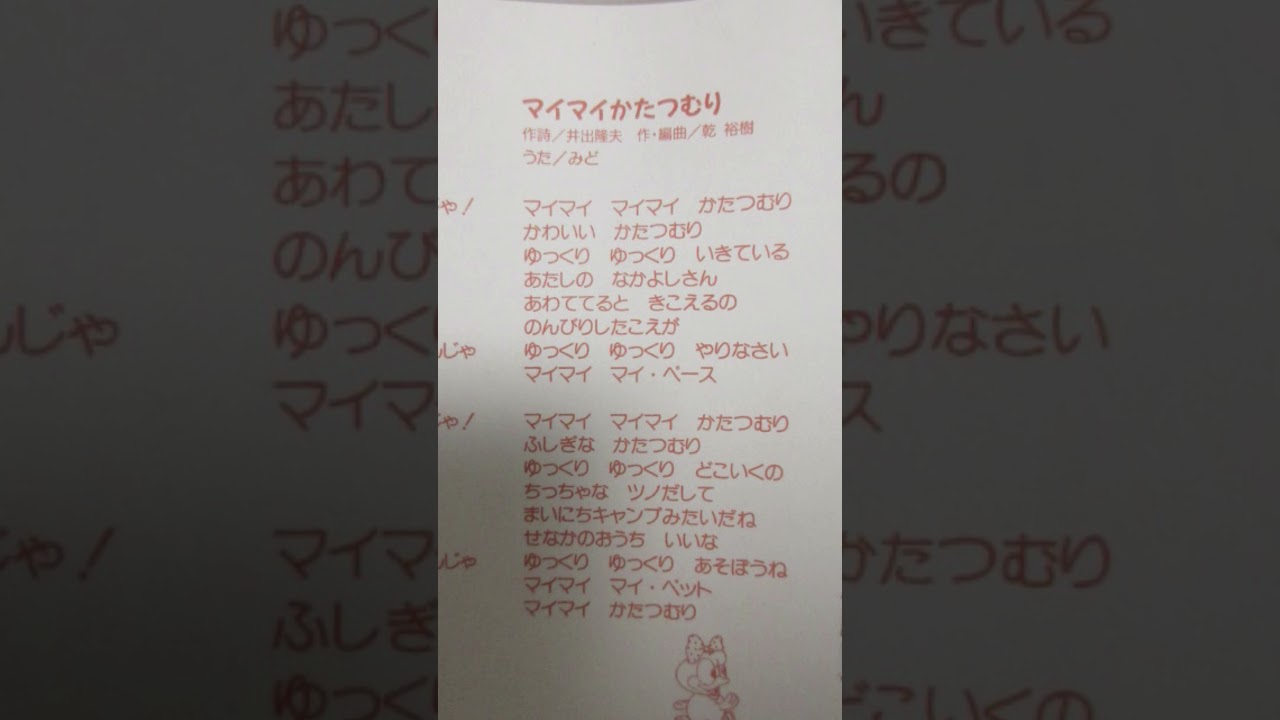 マイマイかたつむり
作詩／井出隆夫　作・編曲／乾 裕樹
うた／みど
マイマイ　マイマイ　かたつむり
かわいい　かたつむり
ゆっくり　ゆっくり　いきている
あたしの　なかよしさん
あわててると　きこえるの
のんびりしたこえが
ゆっくり　ゆっくり　やりなさい
マイマイ　マイ・ペース
マイマイ　マイマイ　かたつむり
ふしぎな　かたつむり
ゆっくり　ゆっくり　どこいくの
ちっちゃな　ツノだして
まいにちキャンプみたいだね
せなかのおうち　いいな
ゆっくり　ゆっくり　あそぼうね
マイマイ　マイ・ペット
マイマイ　かたつむり